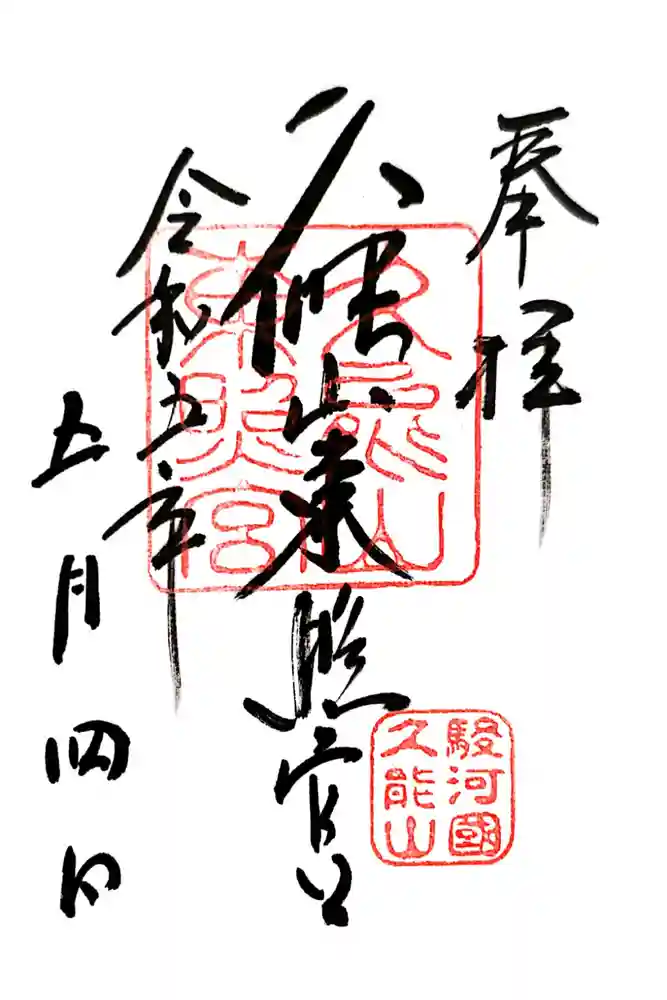 奉拝
久能山東照宮
令和五年
五月四日
久能山
東照宮
駿河國
久能山